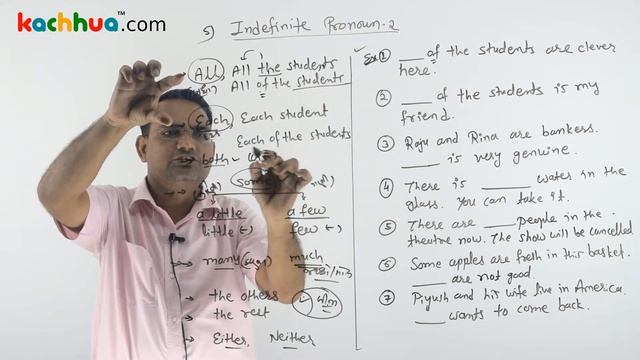 kachhua.com™
5) Indefinite Pronoun-2
All All the students
All of the students
Each Each student
Each of the students
both
some
a little a few
little (-) few (-)
many much
the others
the rest
Either, Neither
Ex ① ____ of the students are clever
here.
② ____ of the students is my
friend.
③ Raju and Rina are bankers.
____ is very genuine.
④ There is ____ water in the
glass. You can take it.
⑤ There are ____ people in the
theatre now. The show will be cancelled
⑥ Some apples are fresh in this basket.
____ are not good.
⑦ Piyush and his wife live in America.
____ wants to come back.